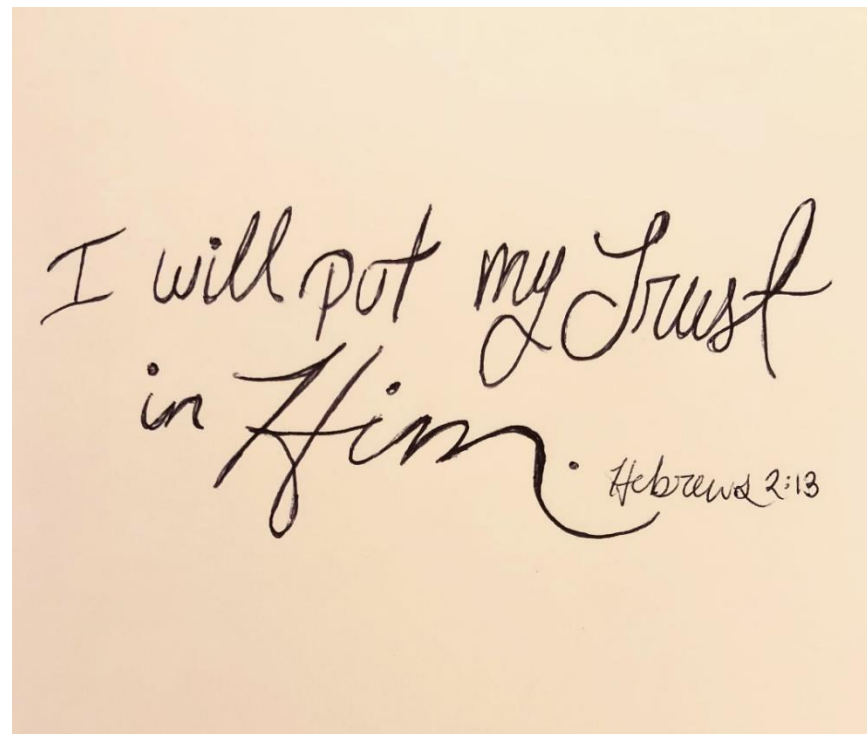 I will put my Trust
in Him.
Hebrews 2:13